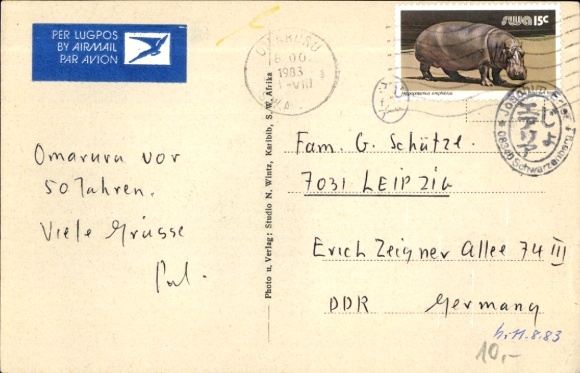 PER LUGPOS
BY AIRMAIL
PAR AVION
1983
SWA 15c
Hippopotamus amphibius
08340 Schwarzenberg
Omaruru vor
50 Jahren.
Viele Grüsse
Photo u. Verlag: Studio N. Wintz, Karibib, S. W. Afrika
Fam. G. Schütze.
7031 LEIPZIG
Erich Zeigner Allee 74 III
DDR Germany
11.8.83
10,-